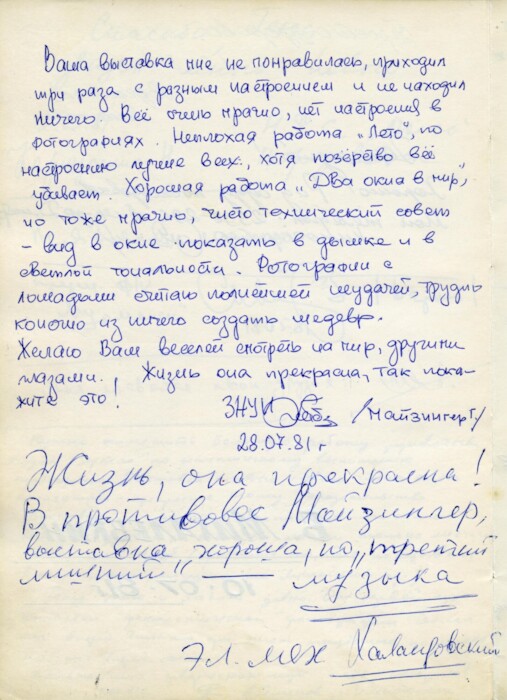 Ваша выставка мне не понравилась, приходил
три раза с разным настроением и не находил
ничего. Всё очень мрачно, нет настроения в
фотографиях. Неплохая работа „Лето", по
настроению лучше всех, хотя позёрство всё
убивает. Хорошая работа „Два окна в мир",
но тоже мрачно, чисто технический совет
- вид в окне показать в дымке и в
светлой тональности. Фотографии с
лошадьми считаю полнейшей неудачей, трудно
конешно из ничего создать шедевр.
Желаю Вам веселей смотреть на мир, другими
глазами. Жизнь она прекрасна, так пока-
жите это!
ЗНУИ /Майзингер Г/
28.07.81 г.
Жизнь, она прекрасна!
В противовес Майзингер,
выставка хороша, но „третий
лишний" музыка
Эл. мех Халандовский